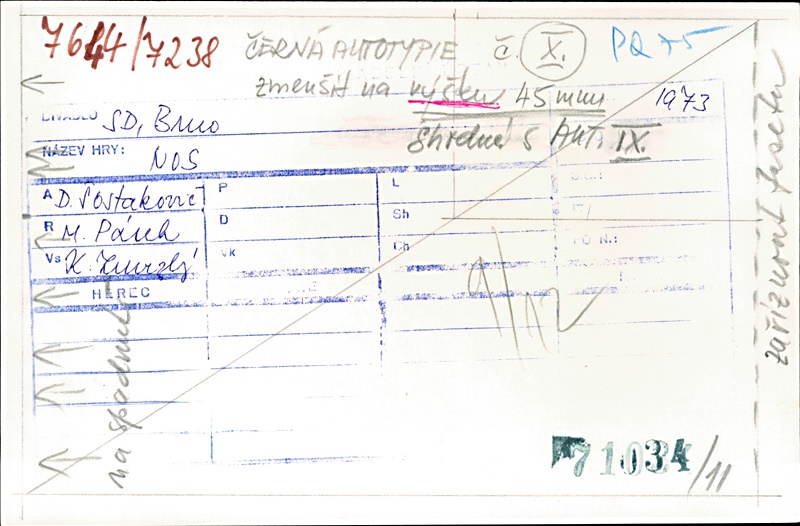 7644/7238 ČERNÁ AUTOTYPIE Č. X. PQ 75
zmenšit na výšku 45 mm 1973
DIVADLO SD, Brno
Shodné s Aut. IX.
NÁZEV HRY: NOS
A D. Šostakovič P L
R M. Pásek D Sh
Vs K. Zmrzlý Vk Ch
HEREC
na spadnutí
zaříznout fasetu
9/12
71034/11